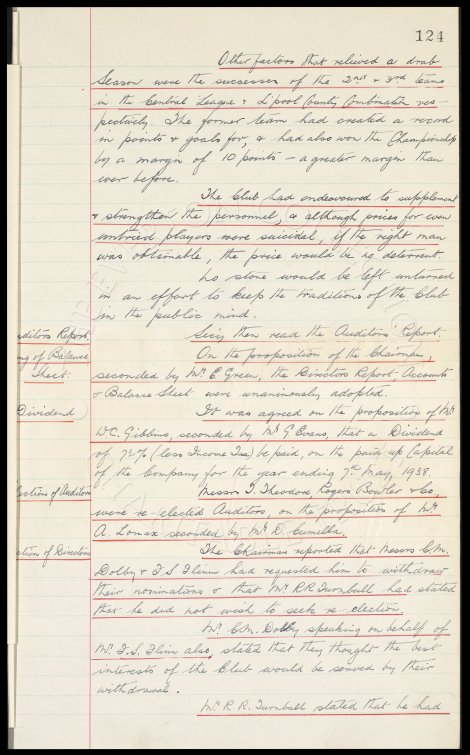 124
Other factors that relieved a drab
Season were the successes of the 2nd & 3rd teams
in the Central League & L'pool County Combination res-
pectively. The former team had created a record
in points & goals for, & had also won the Championship
by a margin of 10 points - a greater margin than
ever before.
The Club had endeavoured to supplement
& strengthen the personnel, & although prices for even
untried players were suicidal, if the right man
was obtainable, the price would be no deterrent.
No stone would be left unturned
in an effort to keep the traditions of the Club
in the public mind.
Secy. then read the Auditors' Report.
On the proposition of the Chairman,
seconded by Mr. E. Green, the Directors Report, Accounts
& Balance Sheet were unanimously adopted.
It was agreed on the proposition of Mr
W.C. Gibbins, seconded by Mr. G Evans, that a Dividend
of 7½% (less Income Tax) be paid, on the paid up Capital
of the Company for the year ending 7th May, 1938.
Messrs T. Theodore Rogers Bowler & Co.,
were re-elected Auditors, on the proposition of Mr
A. Lomax seconded by Mr D. Cunella.
The Chairman reported that Messrs C.M.
Dolby & F S Flinn had requested him to withdraw
their nominations & that Mr. R.R Turnbull had stated
that he did not wish to seek re-election.
Mr. C.M. Dolby speaking on behalf of
Mr. F.S. Flinn also, stated that they thought the best
interests of the Club would be served by their
withdrawal.
Mr. R R. Turnbull stated that he had
ditors Report,
ng of Balance
Sheet.
Dividend
lection of Auditors
tion of Directors